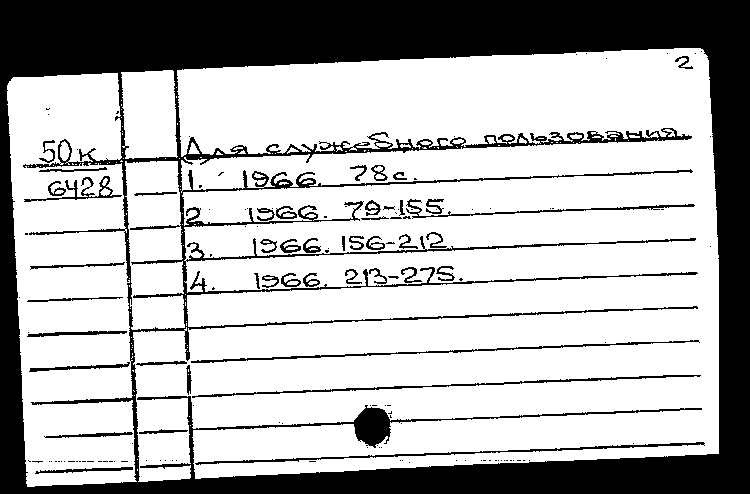 2
50к Для служебного пользования.
6428 1. 1966. 78с.
2 1966. 79-155.
3. 1966. 156-212.
4. 1966. 213-275.